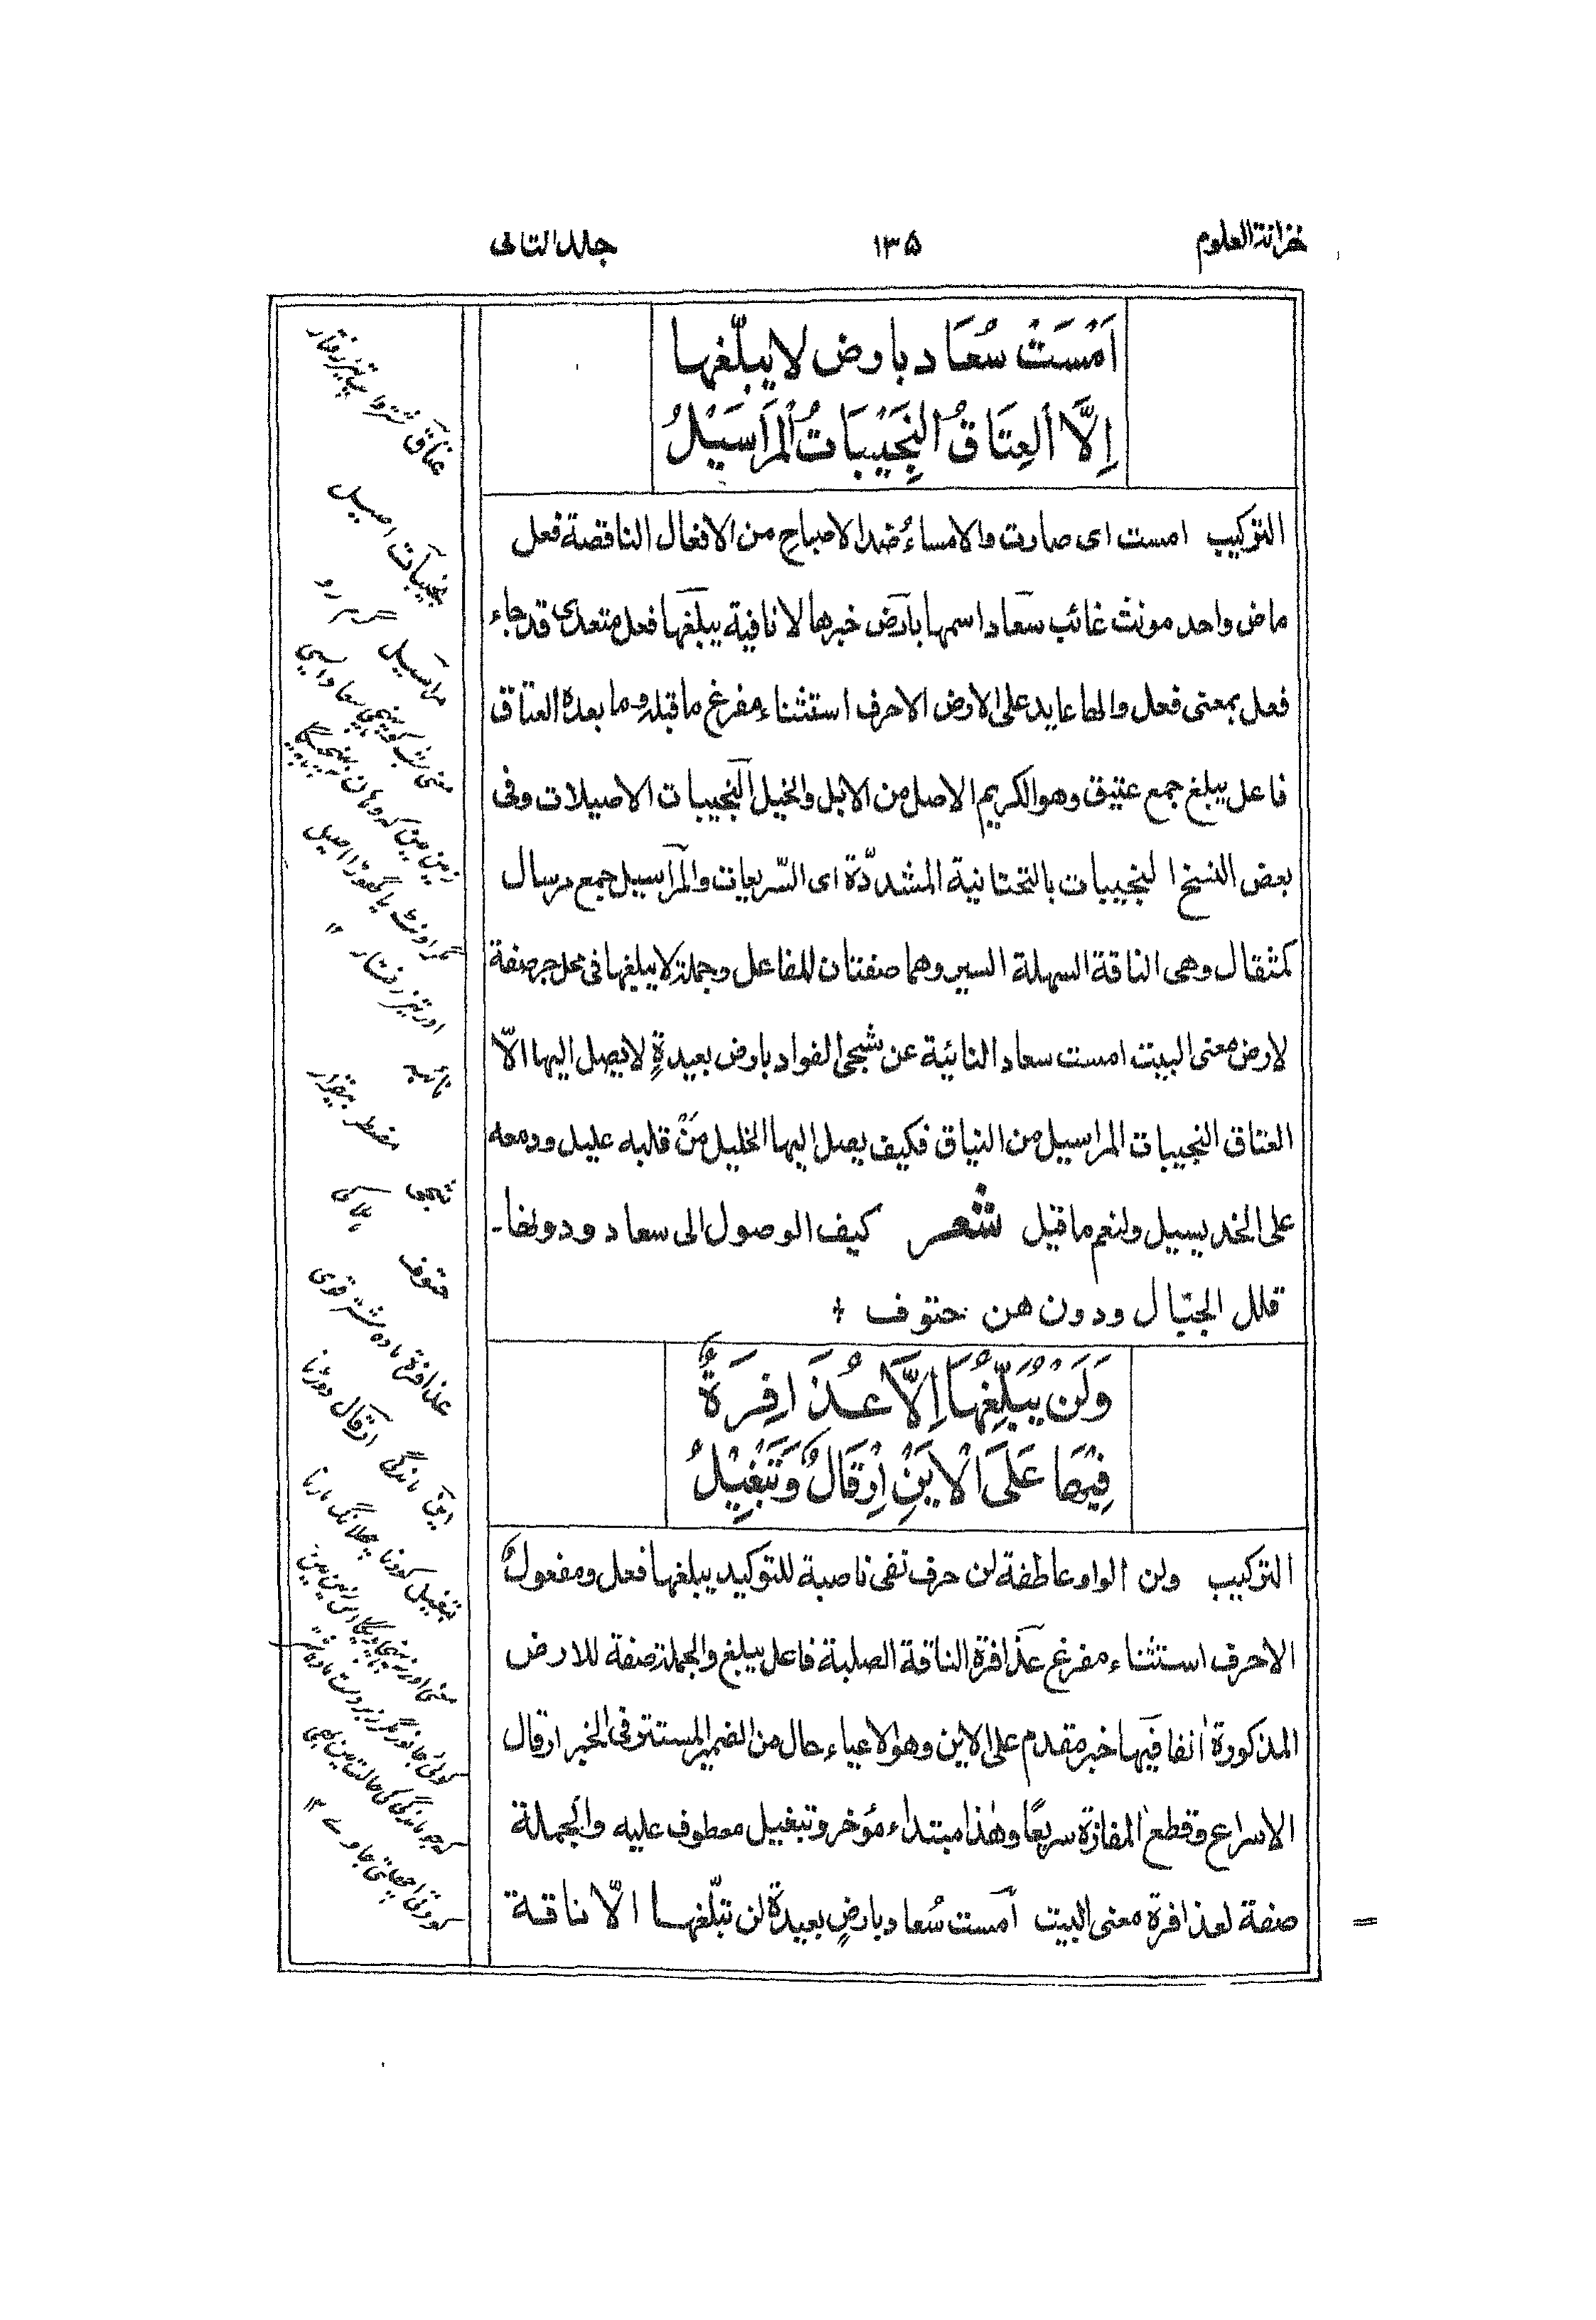 خزانة العلوم
۱۳۵
جلد الثانی
اَمْسَتْ سُعَاد بارض لا يبلّغها
اِلَّا الْعِتَاقُ النَّجِيْبَاتُ الْمَرَاسِيْلُ
التركيب امست ای صارت والامساءُ ضد الاصباح من الافعال الناقصة فعل
ماض واحد مونث غائب سعاد اسمها بارض خبرها لا نافية يبلغها فعل متعدی قد جاء
فعل بمعنی فعل والها عايد علی الارض الا حرف استثناء مفرغ ما قبله وما بعده العتاق
فاعل يبلغ جمع عتيق وهو الكريم الاصل من الابل والخيل النجيبات الاصيلات وفی
بعض النسخ النجيبات بالتحتانية المشدّدة ای السّريعات والمراسيل جمع مرسال
كمثقال وهی الناقة السهلة السير وهما صفتان للفاعل وجملة لا يبلغها فی محل جر صفة
لارض معنی البيت امست سعاد النائية عن شجی الفواد بارض بعيدةٍ لا يصل اليها الّا
العتاق النجيبات المراسيل من النياق فكيف يصل اليها الخليل مَنْ قلبه عليل ودمعه
علی الخد يسيل ولنعم ما قيل شعر كيف الوصول الی سعاد ودونها۔
قلل الجبال ودون هن حتوف
وَلَنْ يُبَلِّغَهَا اِلَّا عُذَافِرَةٌ
فِيْهَا عَلَى الْاَيْنِ اِرْقَالٌ وَتَبْغِيْلُ
التركيب ولن الواو عاطفة لن حرف نفی ناصبة للتوكيد يبلغها فعل ومفعولٌ
الا حرف استثناء مفرغ عذافرة الناقة الصلبة فاعل يبلغ والجملة صفة للارض
المذكورة اٰنفا فيها خبر مقدم علی الاين وهو الاعياء حال من الضمير المستتر فی الخبر ارقال
الاسراع وقطع المفازة سريعًا وهٰذا مبتداء مؤخر وتبغيل معطوف عليه والجملة
صفة لعذافرة معنی البيت امست سُعاد بارضٍ بعيدة لن تبلّغها الّا ناقة
عتاق
نجیبات اصیل
مراسیل
زمین میں کہ وہان
گمر اونٹ یا گھوڑا اصیل
اور تیز رفتار ۱۲
نائیہ
مضطر بیقرار
شجی
حتوف
عذافرة مادہ شتر قوی
ارقال دوڑنا
این ماندگی
تبغیل کودنا